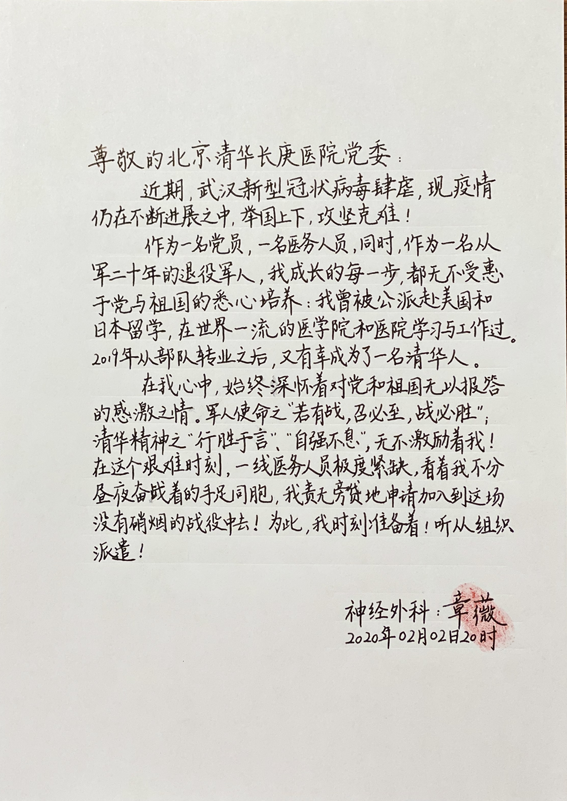 尊敬的北京清华长庚医院党委：
近期，武汉新型冠状病毒肆虐，现疫情
仍在不断进展之中，举国上下，攻坚克难！
作为一名党员，一名医务人员，同时，作为一名从
军二十年的退役军人，我成长的每一步，都无不受惠
于党与祖国的悉心培养：我曾被公派赴美国和
日本留学，在世界一流的医学院和医院学习与工作过。
2019年从部队转业之后，又有幸成为了一名清华人。
在我心中，始终深怀着对党和祖国无以报答
的感激之情。军人使命之“若有战，召必至，战必胜”；
清华精神之“行胜于言”、“自强不息”，无不激励着我！
在这个艰难时刻，一线医务人员极度紧缺，看着我不分
昼夜奋战着的手足同胞，我责无旁贷地申请加入到这场
没有硝烟的战役中去！为此，我时刻准备着！听从组织
派遣！
神经外科：章薇
2020年02月02日20时